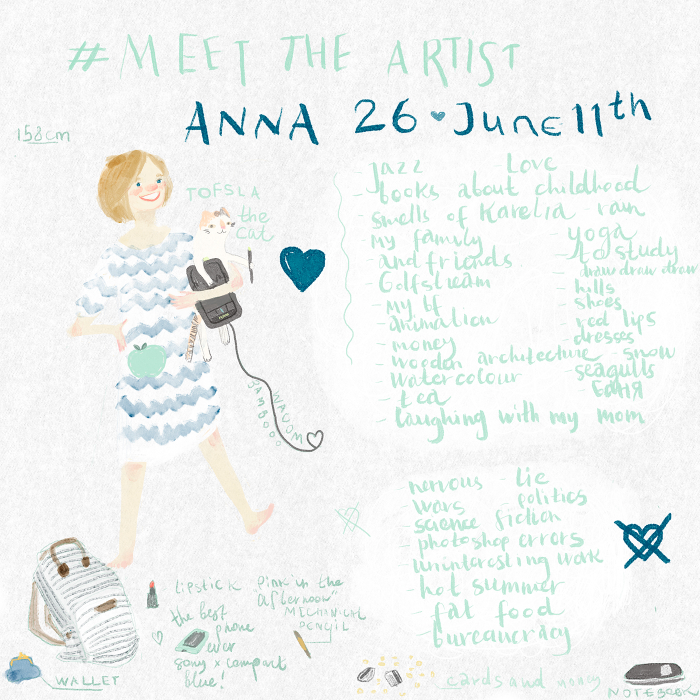 #MEET THE ARTIST
ANNA 26 June 11th
158cm
TOFSLA
the
cat
WACOM
BAMBOO
- Jazz
- books about childhood
- smells of Karelia
- my family
and friends
- Golfstream
- my bf
- animation
- money
- wooden architecture
- watercolour
- tea
- laughing with my mom
- Love
- rain
- yoga
- to study
- draw draw draw
- hills
- shoes
- red lips
- dresses
- snow
- seagulls
- БАНЯ
- nervous
- wars
- science fiction
- photoshop errors
- uninteresting work
- hot summer
- fat food
- bureaucracy
- lie
- politics
lipstick "pink in the
afternoon"
the best
phone
ever
sony x compact
blue!
MECHANICAL
PENCIL
WALLET
cards and money
NOTEBOOK